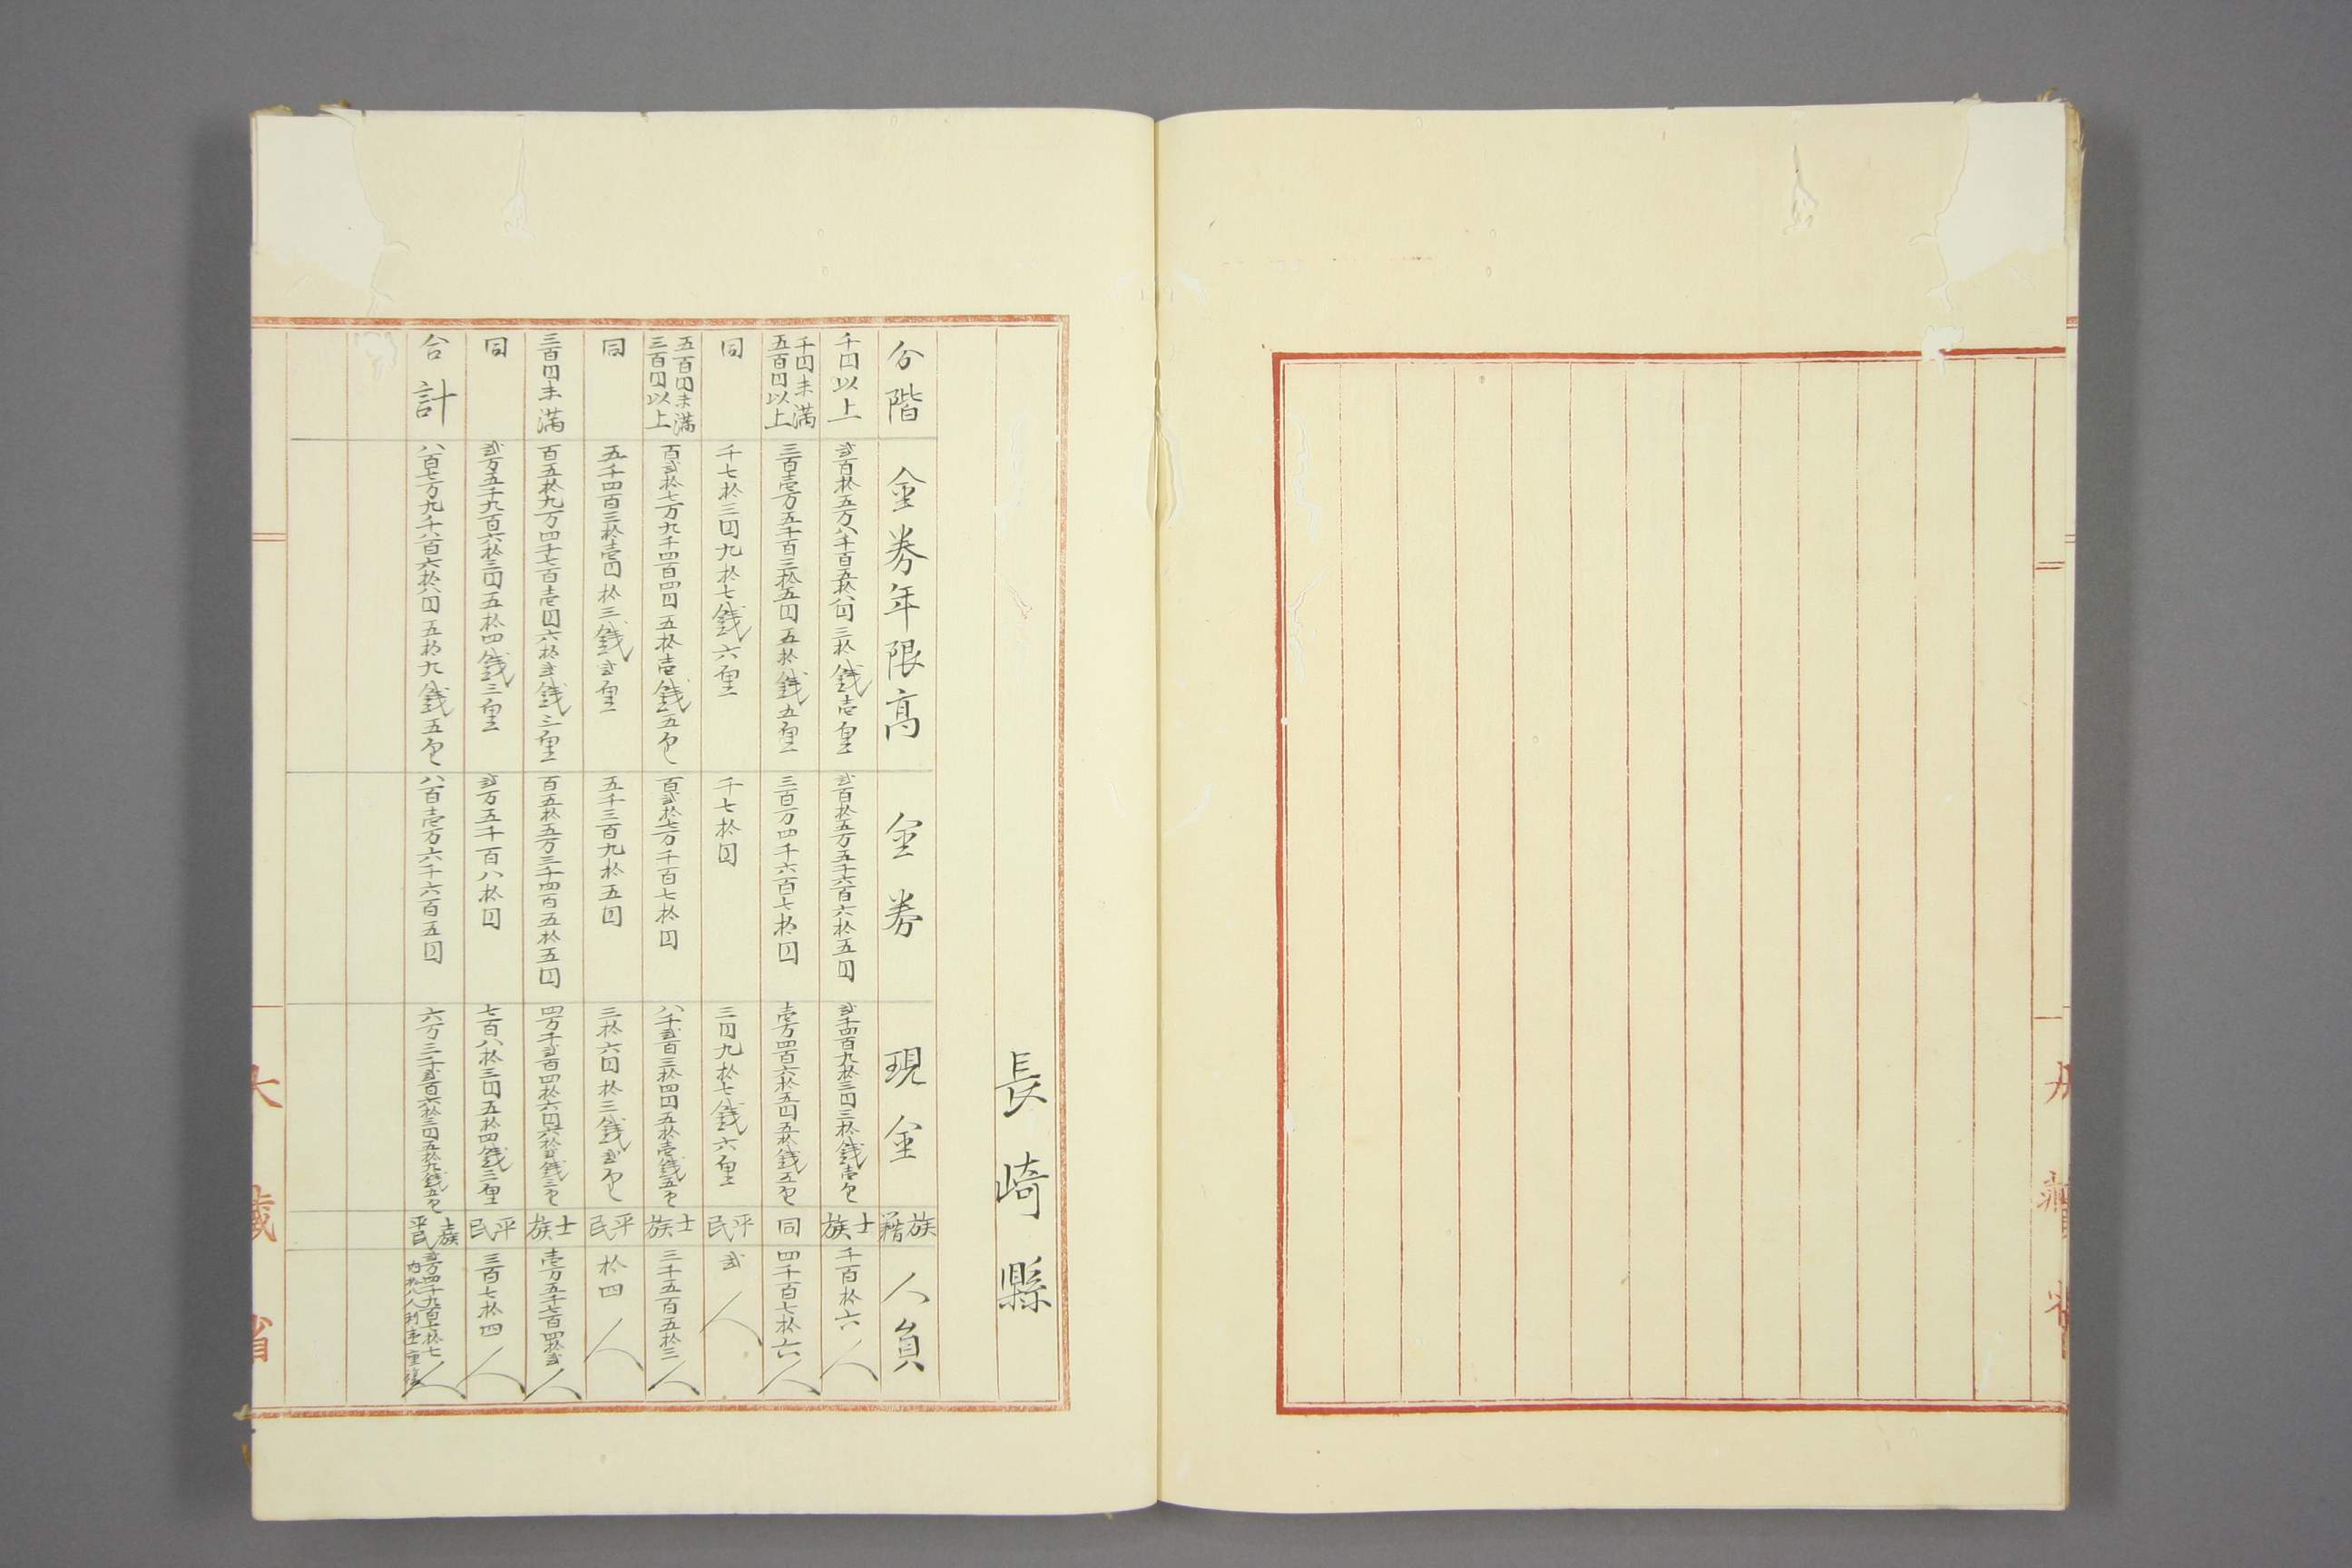 長崎縣
分階 金券年限高 金券 現金 族籍 人員
千円以上 貳百拾五万八千百五拾八円三拾銭壱厘 貳百拾五万五千六百六拾五円 貳千四百九拾三円三拾銭壱厘 士族 千百拾六人
千円未満五百円以上 三百壱万五千百三拾五円五拾銭五厘 三百万四千六百七拾円 壱万四百六拾五円五拾銭五厘 同 四千百七拾六人
同 千七拾三円九拾七銭六厘 千七拾円 三円九拾七銭六厘 平民 貳人
五百円未満三百円以上 百貳拾七万九千四百四円五拾壱銭五厘 百貳拾七万千百七拾円 八千貳百三拾四円五拾壱銭五厘 士族 三千五百五拾三人
同 五千四百三拾壱円拾三銭貳厘 五千三百九拾五円 三拾六円拾三銭貳厘 平民 拾四人
三百円未満 百五拾九万四千七百壱円六拾貳銭三厘 百五拾五万三千四百五拾五円 四万千貳百四拾六円六拾貳銭三厘 士族 壱万五千七百四拾貳人
同 貳万五千九百六拾三円五拾四銭三厘 貳万五千百八拾円 七百八拾三円五拾四銭三厘 平民 三百七拾四人
合計 八百七万九千八百六拾八円五拾九銭五厘 八百壱万六千六百五円 六万三千貳百六拾三円五拾九銭五厘 士族平民 貳万四千九百七拾七人 内拾八人 重複
大藏省
大藏省